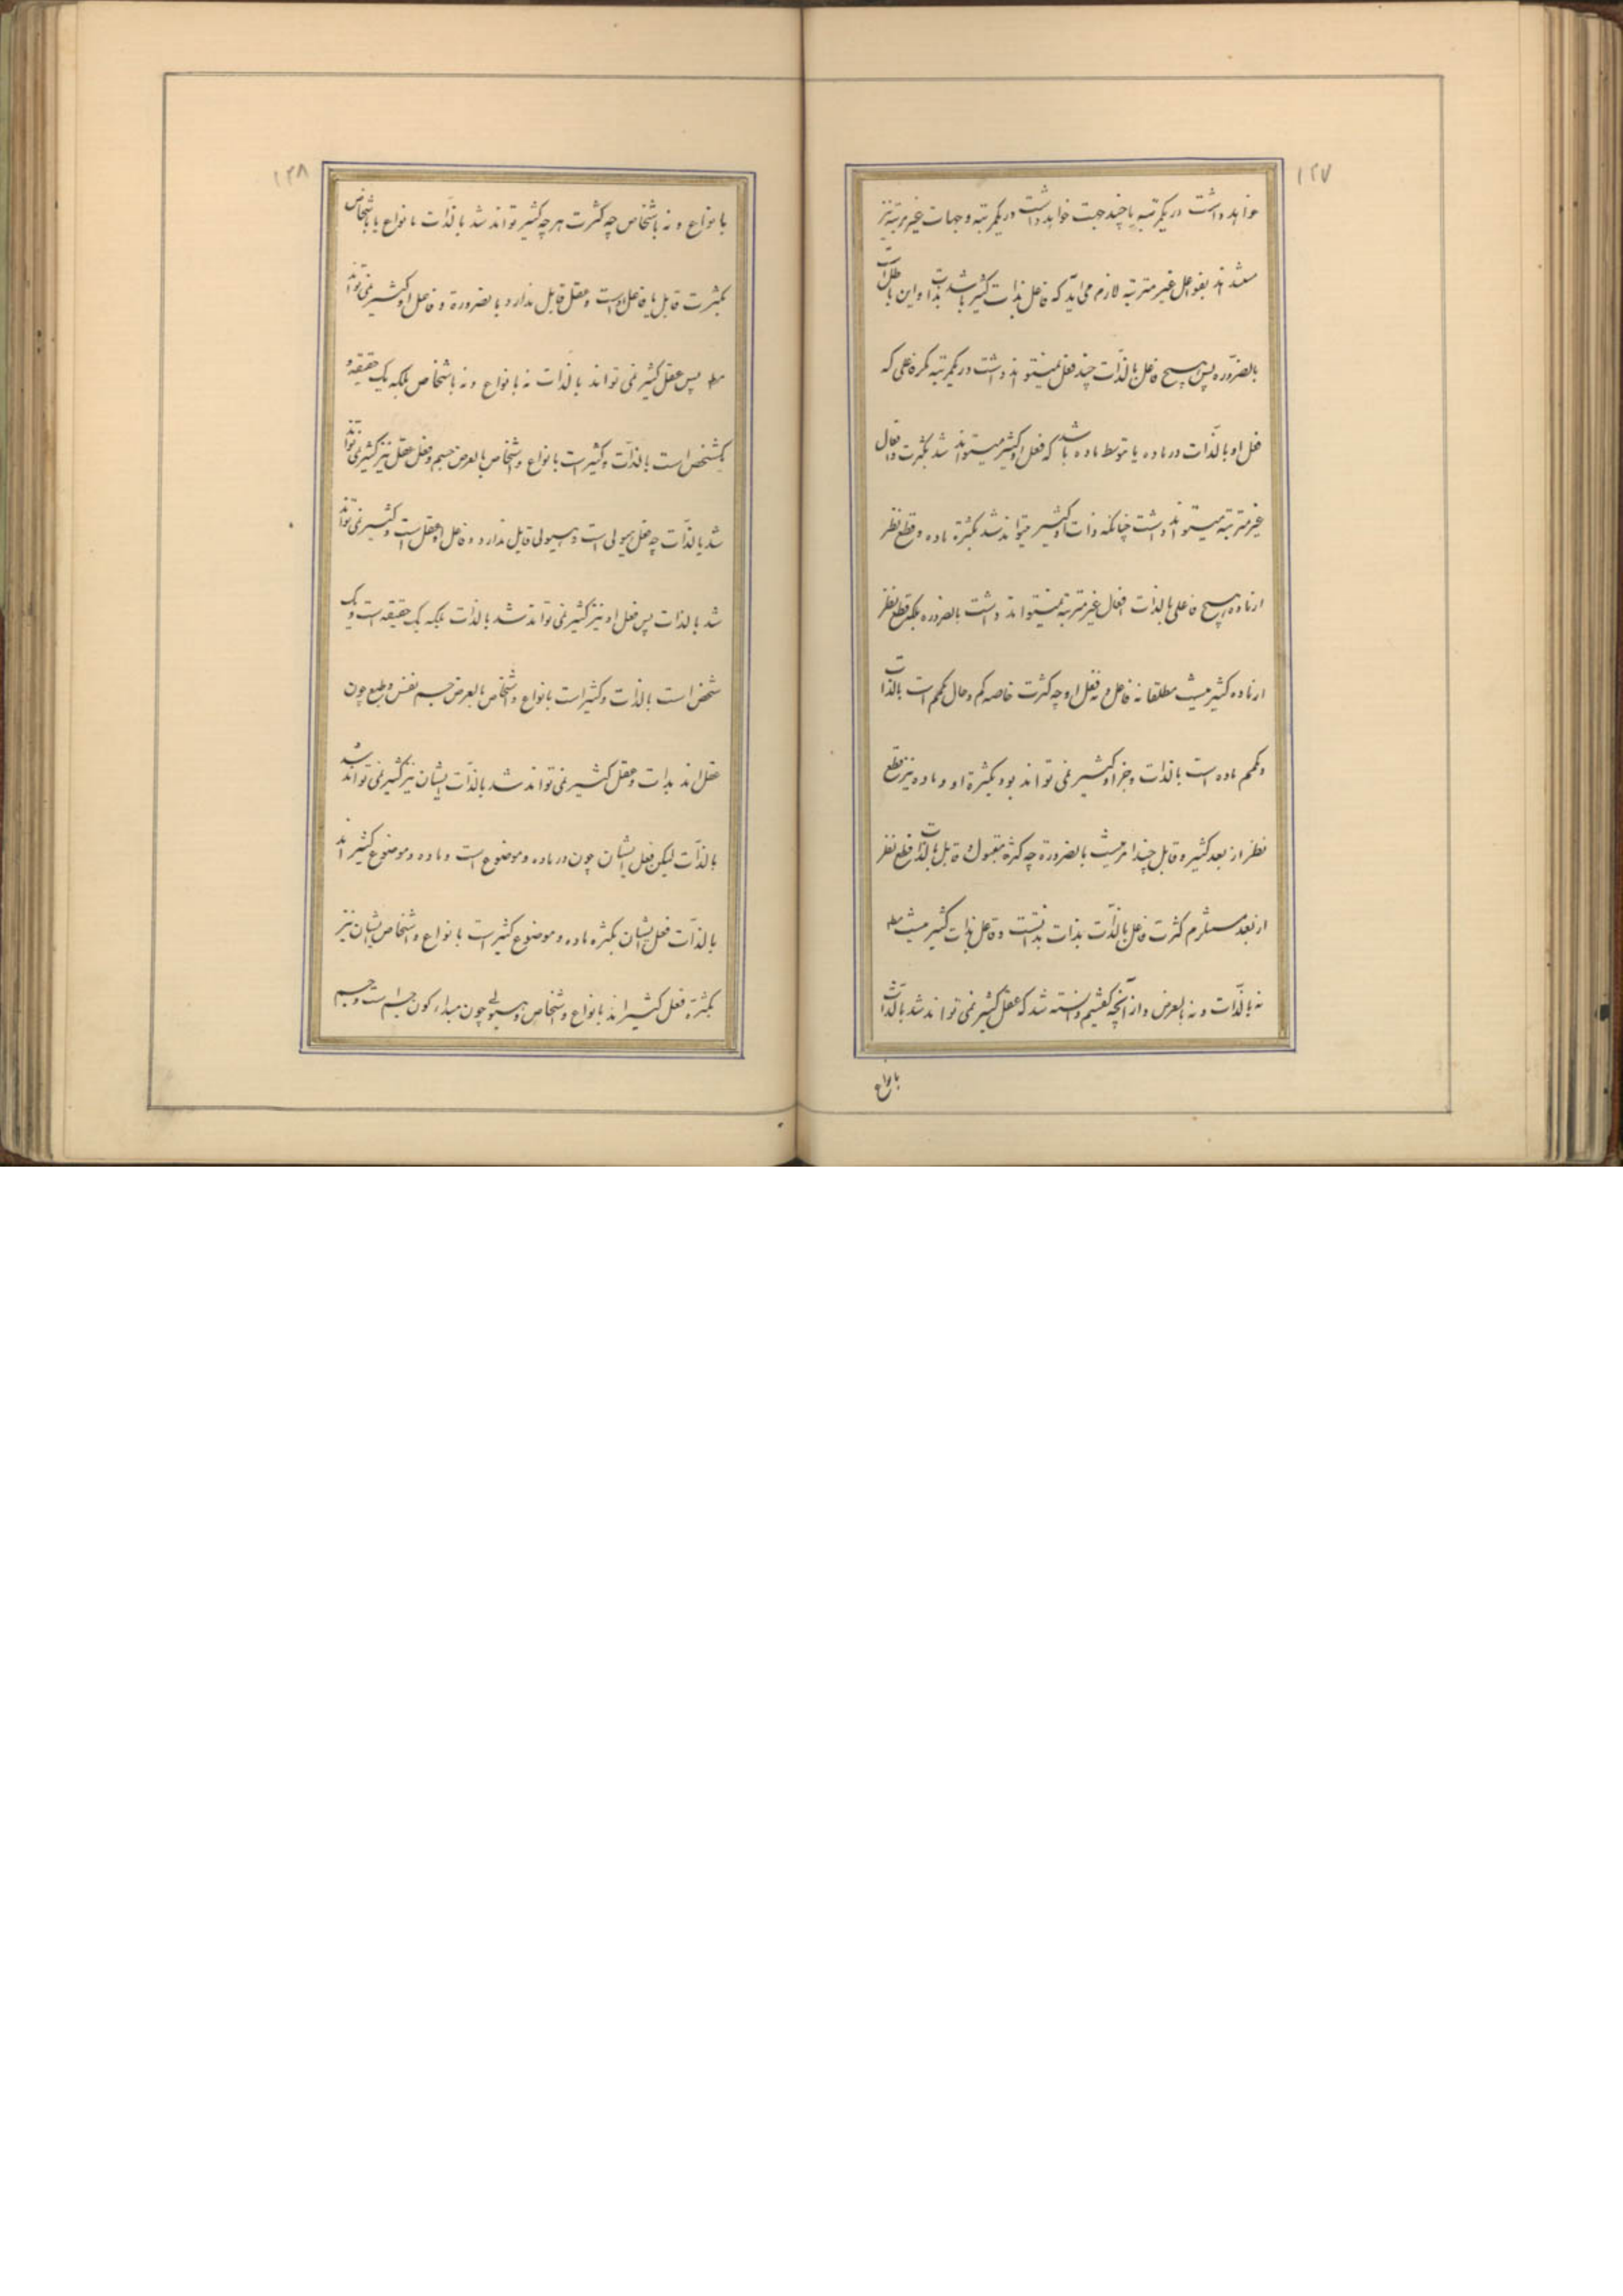 ۱۲۷
خواهد داشت در یکمرتبه یا چند جهت خواهد داشت در یکمرتبه و جهات غیر مرتبه نیز
مستندند بفواعل غیر مترتبه لازم می‌آید که فاعل بذات کثیر باشد بذات و این باطل است
بالضروره پس هیچ فاعل بالذات چند فعل نمیتواند داشت در یکمرتبه مگر فاعلی که
فعل او بالذات در ماده یا بتوسط ماده باشد که فعل او کثیر میتواند شد بکثرت و افعال
غیر مترتبه میتواند داشت چنانکه ذات او کثیر میتواند شد بکثرة ماده و قطع نظر
از ماده هیچ فاعلی بالذات افعال غیر مترتبه نمیتواند داشت بالضروره بلکه قطع نظر
از ماده کثیر نیست مطلقا نه فاعل و نه فعل او چه کثرت خاصه کم و حال کم است بالذات
و کم ماده است بالذات و جز او کثیر نمی تواند بود بکثرة او و ماده نیز قطع
نظر از بعد کثیر و قابل چند امر نیست بالضرورة چه کثرة مقبول قابل بالذات قطع نظر
از بعد مستلزم کثرت فاعل بالذات بذات بذاتست و فاعل بذات کثیر نیست
نه بالذات و نه بالعرض و از آنچه گفتیم دانسته شد که عقل کثیر نمی تواند شد بالذات
بانواع
۱۲۸
بانواع و نه باشخاص چه کثرت هر چه کثیر تواند شد بالذات بانواع یا باشخاص
بکثرت قابل یا فاعل است و عقل قابل ندارد بالضرورة و فاعل او کثیر نمی تواند
شد پس عقل کثیر نمی تواند بالذات نه بانواع و نه باشخاص بلکه یک حقیقه و
یکشخص است بالذات و کثیر است بانواع و اشخاص بالعرض جسم و فعل عقل نیز کثیر نمی تواند
شد بالذات چه فعل هیولی است و هیولی قابل ندارد و فاعل او عقل است و کثیر نمی تواند
شد بالذات پس فعل او نیز کثیر نمی تواند شد بالذات بلکه یک حقیقه است و یک
شخص است بالذات و کثیر است بانواع و اشخاص بالعرض جسم نفس و طبع چون
عقل اند بذات و عقل کثیر نمی تواند شد بالذات ایشان نیز کثیر نمی تواند شد
بالذات لیکن فعل ایشان چون در ماده و موضوع است و ماده و موضوع کثیر اند
بالذات فعل ایشان بکثره ماده و موضوع کثیر است بانواع و اشخاص ایشان نیز
بکثرة فعل کثیر اند بانواع و اشخاص و هیولی چون مبداء کون جسم است و جسم